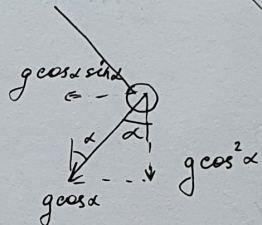 g cosα sinα
α
α
g cos²α
g cosα